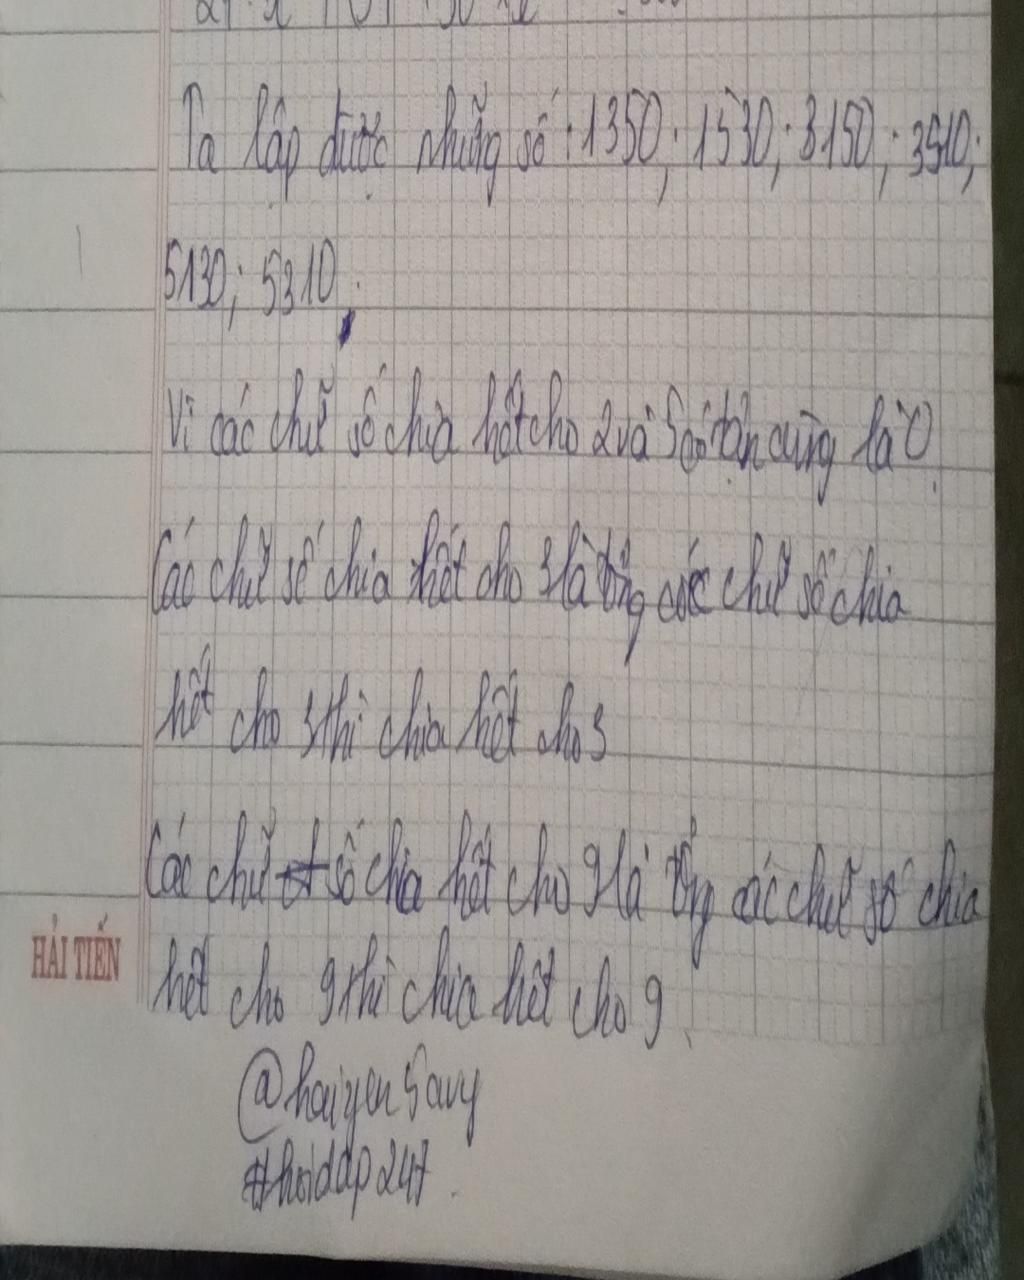 Ta lập được những số : 1350; 1530; 3150; 3510;
5130; 5310.
Vì các chữ số chia hết cho 2 và 5 có tận cùng là 0
Các chữ số chia hết cho 3 là tổng các chữ số chia
hết cho 3 thì chia hết cho 3
Các chữ số chia hết cho 9 là tổng các chữ số chia
hết cho 9 thì chia hết cho 9
HẢI TIẾN
@haiyen5avy
#hoidap247.